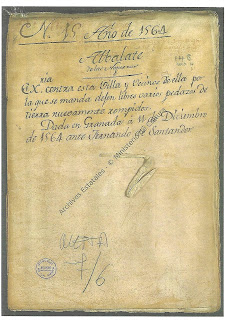 Nº 15 Año de 1564
Albalate
CX. contra esta Villa y Vecinos de ella por
la que se manda dejen libres varios pedazos de
tierra nuevamente rompidos.
Dada en Granada a de Diciembre
de 1564 ante Fernando de Santander
Archivos Estatales
7/6